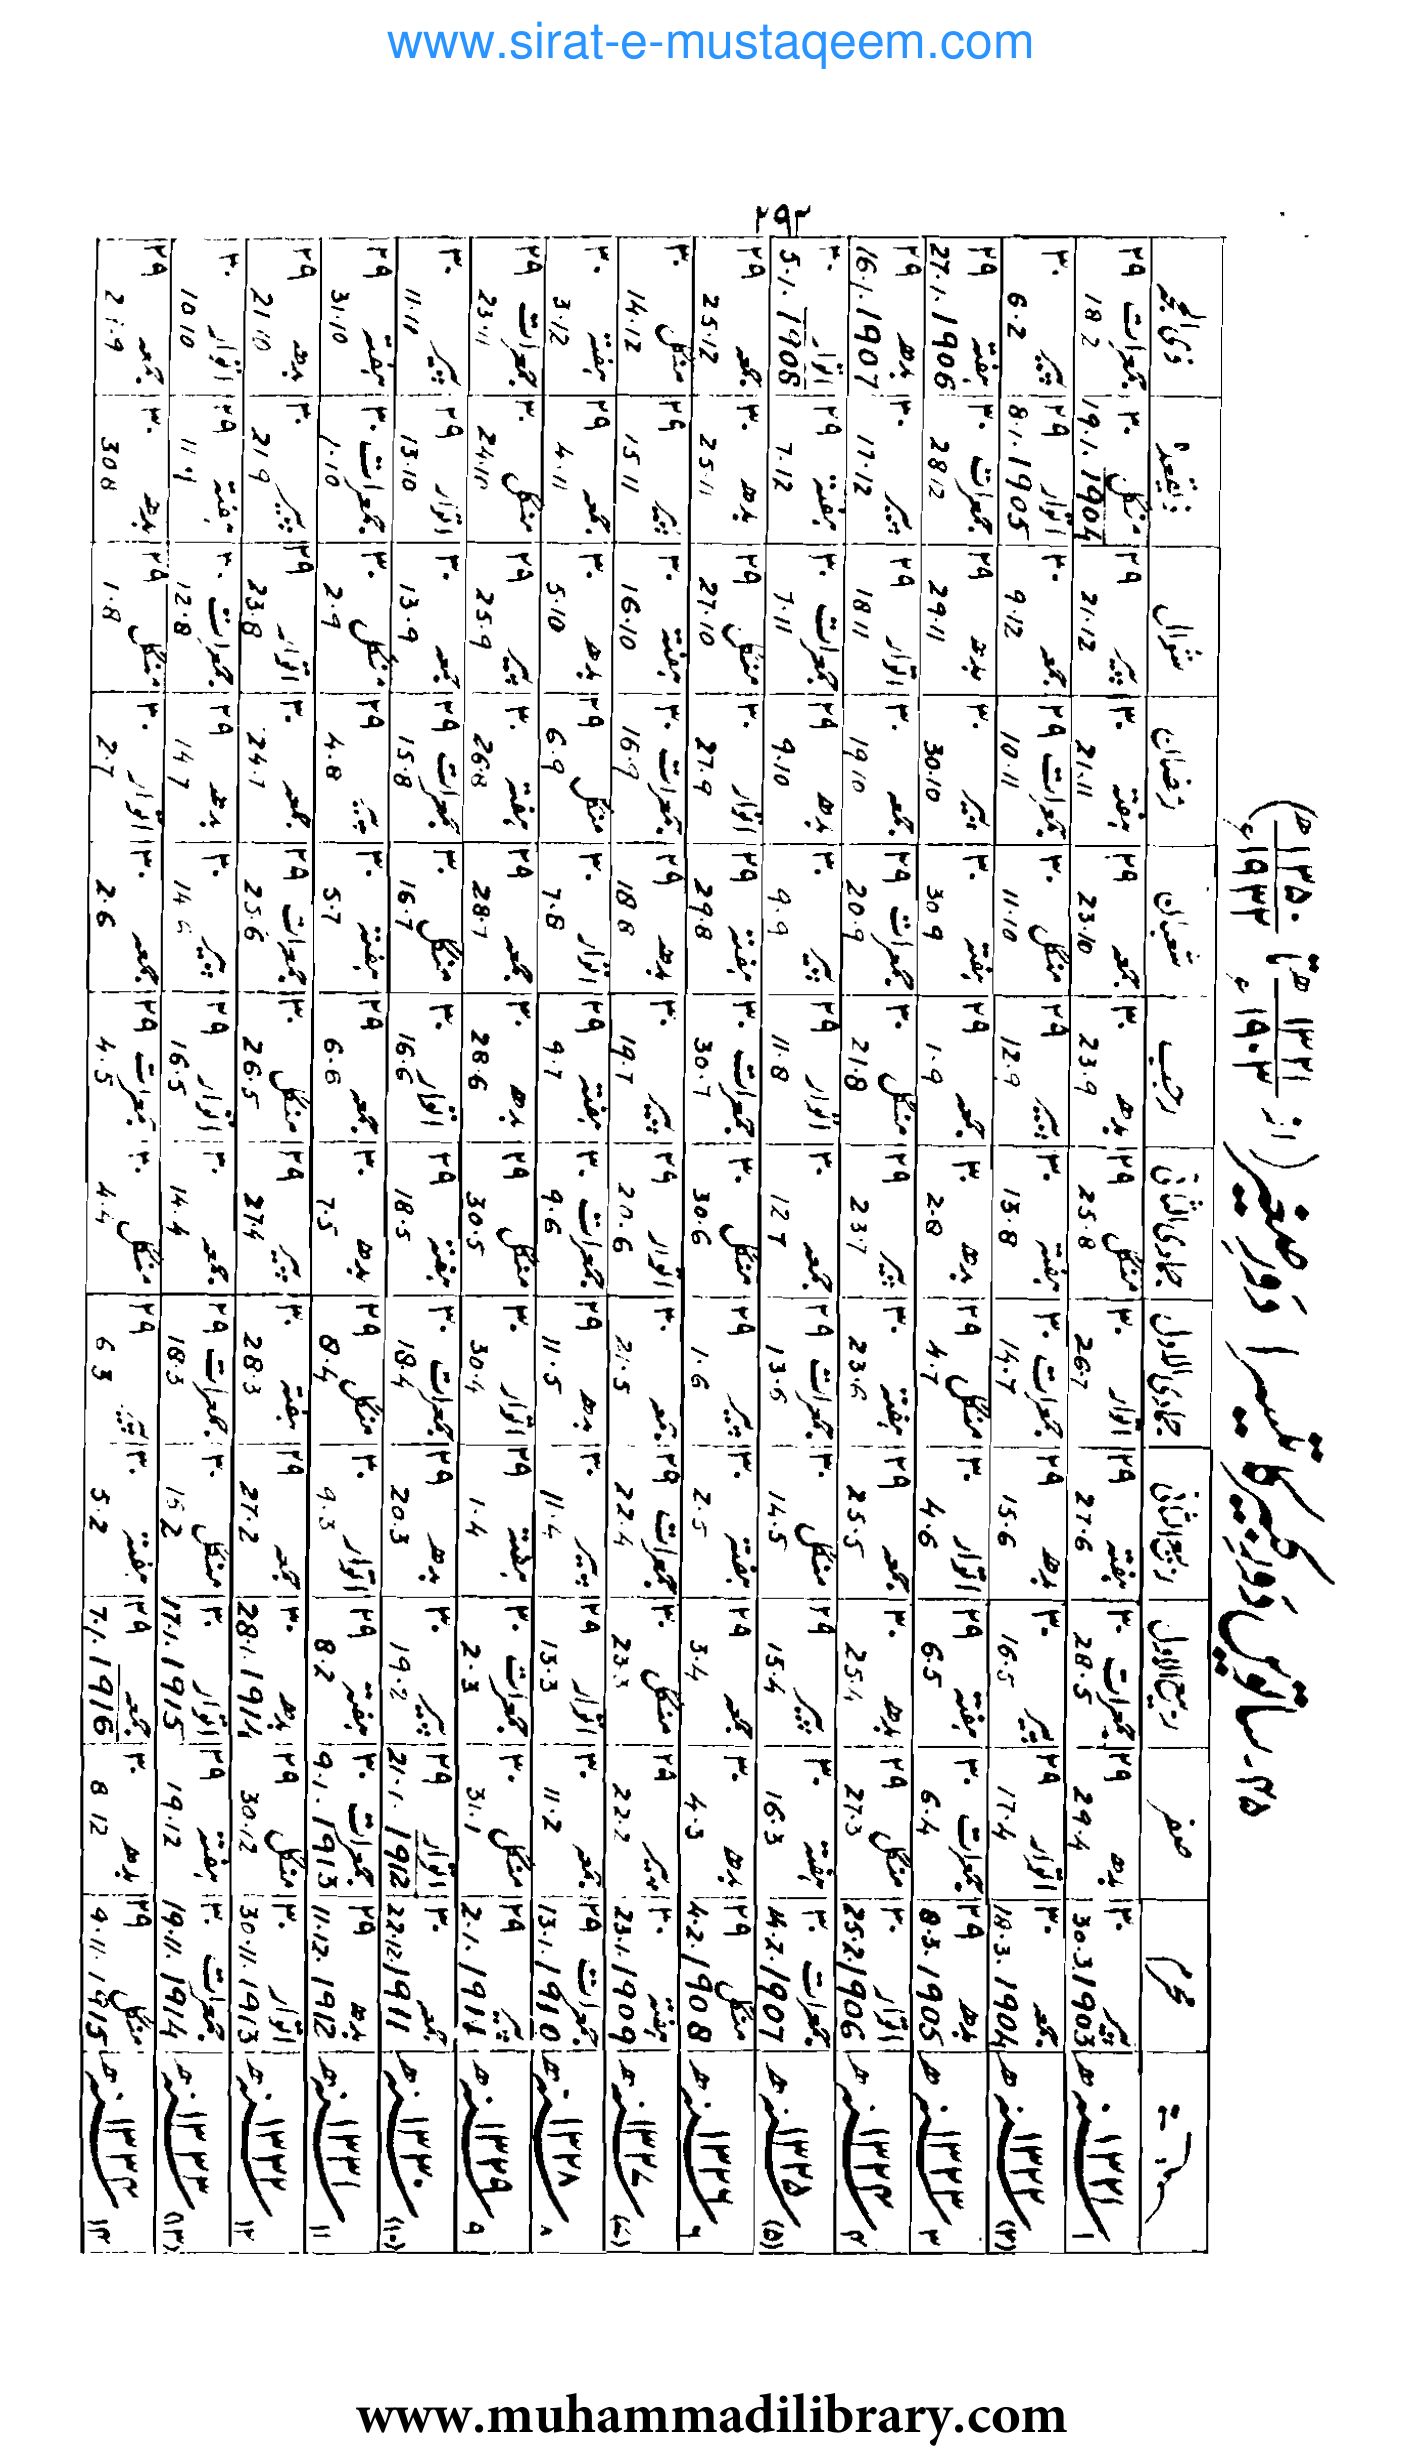 www.sirat-e-mustaqeem.com
۲۹۲
۳۵۔ ساتویں دَورِ کبیر کا تیسرا دَورِ صغیر (از ۱۳۲۱ھ ۱۹۰۳ء تا ۱۳۵۰ھ ۱۹۳۲ء)
محرم صفر ربیع الاول ربیع الثانی جمادی الاول جمادی الثانی رجب شعبان رمضان شوال ذیقعدہ ذی الحجہ
۱ ۱۳۲۱ھ پیر ۳۰ 30.3.1903 بدھ ۲۹ 29.4 جمعرات ۳۰ 28.5 ہفتہ ۲۹ 27.6 اتوار ۳۰ 26.7 منگل ۲۹ 25.8 بدھ ۳۰ 23.9 جمعہ ۲۹ 23.10 ہفتہ ۳۰ 21.11 پیر ۲۹ 21.12 منگل ۳۰ 19.1.1904 جمعرات ۲۹ 18.2
(۲) ۱۳۲۲ھ جمعہ ۳۰ 18.3.1904 اتوار ۲۹ 17.4 پیر ۳۰ 16.5 بدھ ۲۹ 15.6 جمعرات ۳۰ 14.7 ہفتہ ۳۰ 13.8 پیر ۲۹ 12.9 منگل ۳۰ 11.10 جمعرات ۲۹ 10.11 جمعہ ۳۰ 9.12 اتوار ۲۹ 8.1.1905 پیر ۳۰ 6.2
۳ ۱۳۲۳ھ بدھ ۲۹ 8.3.1905 جمعرات ۳۰ 6.4 ہفتہ ۲۹ 6.5 اتوار ۳۰ 4.6 منگل ۲۹ 4.7 بدھ ۳۰ 2.8 جمعہ ۲۹ 1.9 ہفتہ ۳۰ 30.9 پیر ۳۰ 30.10 بدھ ۲۹ 29.11 جمعرات ۳۰ 28.12 ہفتہ ۲۹ 27.1.1906
۴ ۱۳۲۴ھ اتوار ۳۰ 25.2.1906 منگل ۲۹ 27.3 بدھ ۳۰ 25.4 جمعہ ۲۹ 25.5 ہفتہ ۳۰ 23.6 پیر ۲۹ 23.7 منگل ۳۰ 21.8 جمعرات ۲۹ 20.9 جمعہ ۳۰ 19.10 اتوار ۲۹ 18.11 پیر ۳۰ 17.12 بدھ ۲۹ 16.1.1907
(۵) ۱۳۲۵ھ جمعرات ۳۰ 14.2.1907 ہفتہ ۳۰ 16.3 پیر ۲۹ 15.4 منگل ۳۰ 14.5 جمعرات ۲۹ 13.6 جمعہ ۳۰ 12.7 اتوار ۲۹ 11.8 پیر ۳۰ 9.9 بدھ ۲۹ 9.10 جمعرات ۳۰ 7.11 ہفتہ ۲۹ 7.12 اتوار ۳۰ 5.1.1908
۶ ۱۳۲۶ھ منگل ۲۹ 4.2.1908 بدھ ۳۰ 4.3 جمعہ ۲۹ 3.4 ہفتہ ۳۰ 2.5 پیر ۲۹ 1.6 منگل ۳۰ 30.6 جمعرات ۳۰ 30.7 ہفتہ ۲۹ 29.8 اتوار ۳۰ 27.9 منگل ۲۹ 27.10 بدھ ۳۰ 25.11 جمعہ ۲۹ 25.12
(۷) ۱۳۲۷ھ ہفتہ ۳۰ 23.1.1909 پیر ۲۹ 22.2 منگل ۳۰ 23.3 جمعرات ۲۹ 22.4 جمعہ ۳۰ 21.5 اتوار ۲۹ 20.6 پیر ۳۰ 19.7 بدھ ۲۹ 18.8 جمعرات ۳۰ 16.9 ہفتہ ۳۰ 16.10 پیر ۲۹ 15.11 منگل ۳۰ 14.12
۸ ۱۳۲۸ھ جمعرات ۲۹ 13.1.1910 جمعہ ۳۰ 11.2 اتوار ۲۹ 13.3 پیر ۳۰ 11.4 بدھ ۲۹ 11.5 جمعرات ۳۰ 9.6 ہفتہ ۲۹ 9.7 اتوار ۳۰ 7.8 منگل ۲۹ 6.9 بدھ ۳۰ 5.10 جمعہ ۲۹ 4.11 ہفتہ ۳۰ 3.12
۹ ۱۳۲۹ھ پیر ۲۹ 2.1.1911 منگل ۳۰ 31.1 جمعرات ۳۰ 2.3 ہفتہ ۲۹ 1.4 اتوار ۳۰ 30.4 منگل ۲۹ 30.5 بدھ ۳۰ 28.6 جمعہ ۲۹ 28.7 ہفتہ ۳۰ 26.8 پیر ۲۹ 25.9 منگل ۳۰ 24.10 جمعرات ۲۹ 23.11
(۱۰) ۱۳۳۰ھ جمعہ ۳۰ 22.12.1911 اتوار ۲۹ 21.1.1912 پیر ۳۰ 19.2 بدھ ۲۹ 20.3 جمعرات ۳۰ 18.4 ہفتہ ۲۹ 18.5 اتوار ۳۰ 16.6 منگل ۳۰ 16.7 جمعرات ۲۹ 15.8 جمعہ ۳۰ 13.9 اتوار ۲۹ 13.10 پیر ۳۰ 11.11
۱۱ ۱۳۳۱ھ بدھ ۲۹ 11.12.1912 جمعرات ۳۰ 9.1.1913 ہفتہ ۲۹ 8.2 اتوار ۳۰ 9.3 منگل ۲۹ 8.4 بدھ ۳۰ 7.5 جمعہ ۲۹ 6.6 ہفتہ ۳۰ 5.7 پیر ۲۹ 4.8 منگل ۳۰ 2.9 جمعرات ۳۰ 1.10 ہفتہ ۲۹ 31.10
۱۲ ۱۳۳۲ھ اتوار ۳۰ 30.11.1913 منگل ۲۹ 30.12 بدھ ۳۰ 28.1.1914 جمعہ ۲۹ 27.2 ہفتہ ۳۰ 28.3 پیر ۲۹ 27.4 منگل ۳۰ 26.5 جمعرات ۲۹ 25.6 جمعہ ۳۰ 24.7 اتوار ۲۹ 23.8 پیر ۳۰ 21.9 بدھ ۲۹ 21.10
(۱۳) ۱۳۳۳ھ جمعرات ۳۰ 19.11.1914 ہفتہ ۲۹ 19.12 اتوار ۳۰ 17.1.1915 منگل ۳۰ 16.2 جمعرات ۲۹ 18.3 جمعہ ۳۰ 14.4 اتوار ۲۹ 16.5 پیر ۳۰ 14.6 بدھ ۲۹ 14.7 جمعرات ۳۰ 12.8 ہفتہ ۲۹ 11.9 اتوار ۳۰ 10.10
۱۴ ۱۳۳۴ھ منگل ۲۹ 9.11.1915 بدھ ۳۰ 8.12 جمعہ ۲۹ 7.1.1916 ہفتہ ۳۰ 5.2 پیر ۲۹ 6.3 منگل ۳۰ 4.4 جمعرات ۲۹ 4.5 جمعہ ۳۰ 2.6 اتوار ۳۰ 2.7 منگل ۲۹ 1.8 بدھ ۳۰ 30.8 جمعہ ۲۹
www.muhammadilibrary.com